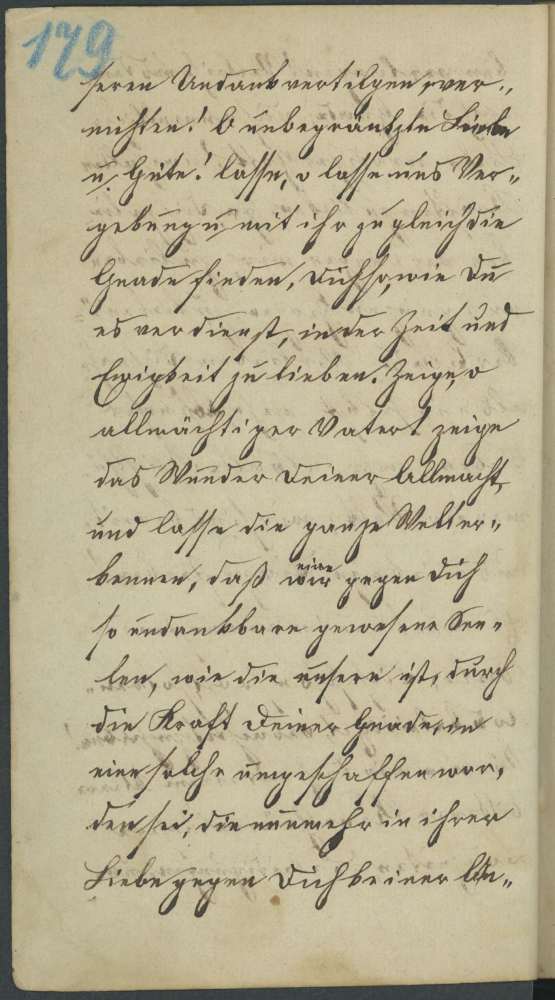 179
seren Undank vertilgen, ver-,
nichten! O unbegränzte Liebe
u. Güte! lasse, o lasse uns Ver-,
gebung u. mit ihr zugleich die
Gnade finden, Dich so, wie Du
es verdienst, in der Zeit und
Ewigkeit zu lieben. Zeige, o
allmächtiger Vater! zeige
das Wunder Deiner Allmacht,
und lasse die ganze Welt er-,
kennen, daß eine wir gegen Dich
so undankbare gewesene See-
len, wie die unsere ist, durch
die Kraft Deiner Gnade, in
eine solche umgeschaffen wor-,
den sei, die nunmehr in ihrer
Liebe gegen Dich keiner